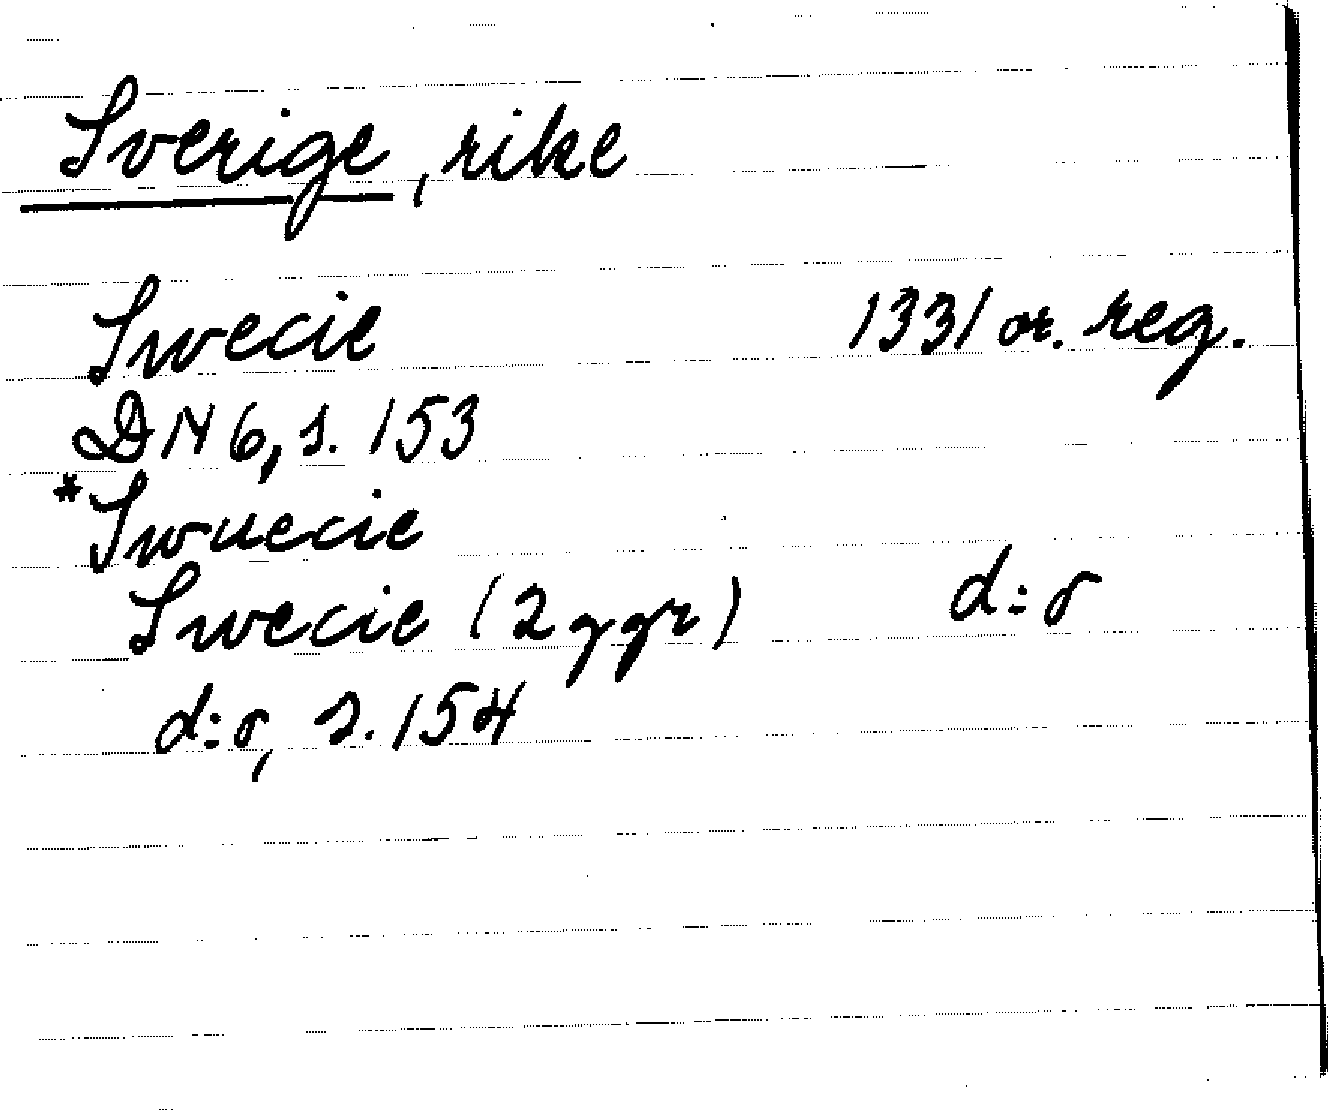 Sverige, rike
Swecie 1331 or. reg.
DN 6, s. 153
*Swuecie
Swecie (2 ggr) d:o
d:o, s. 154